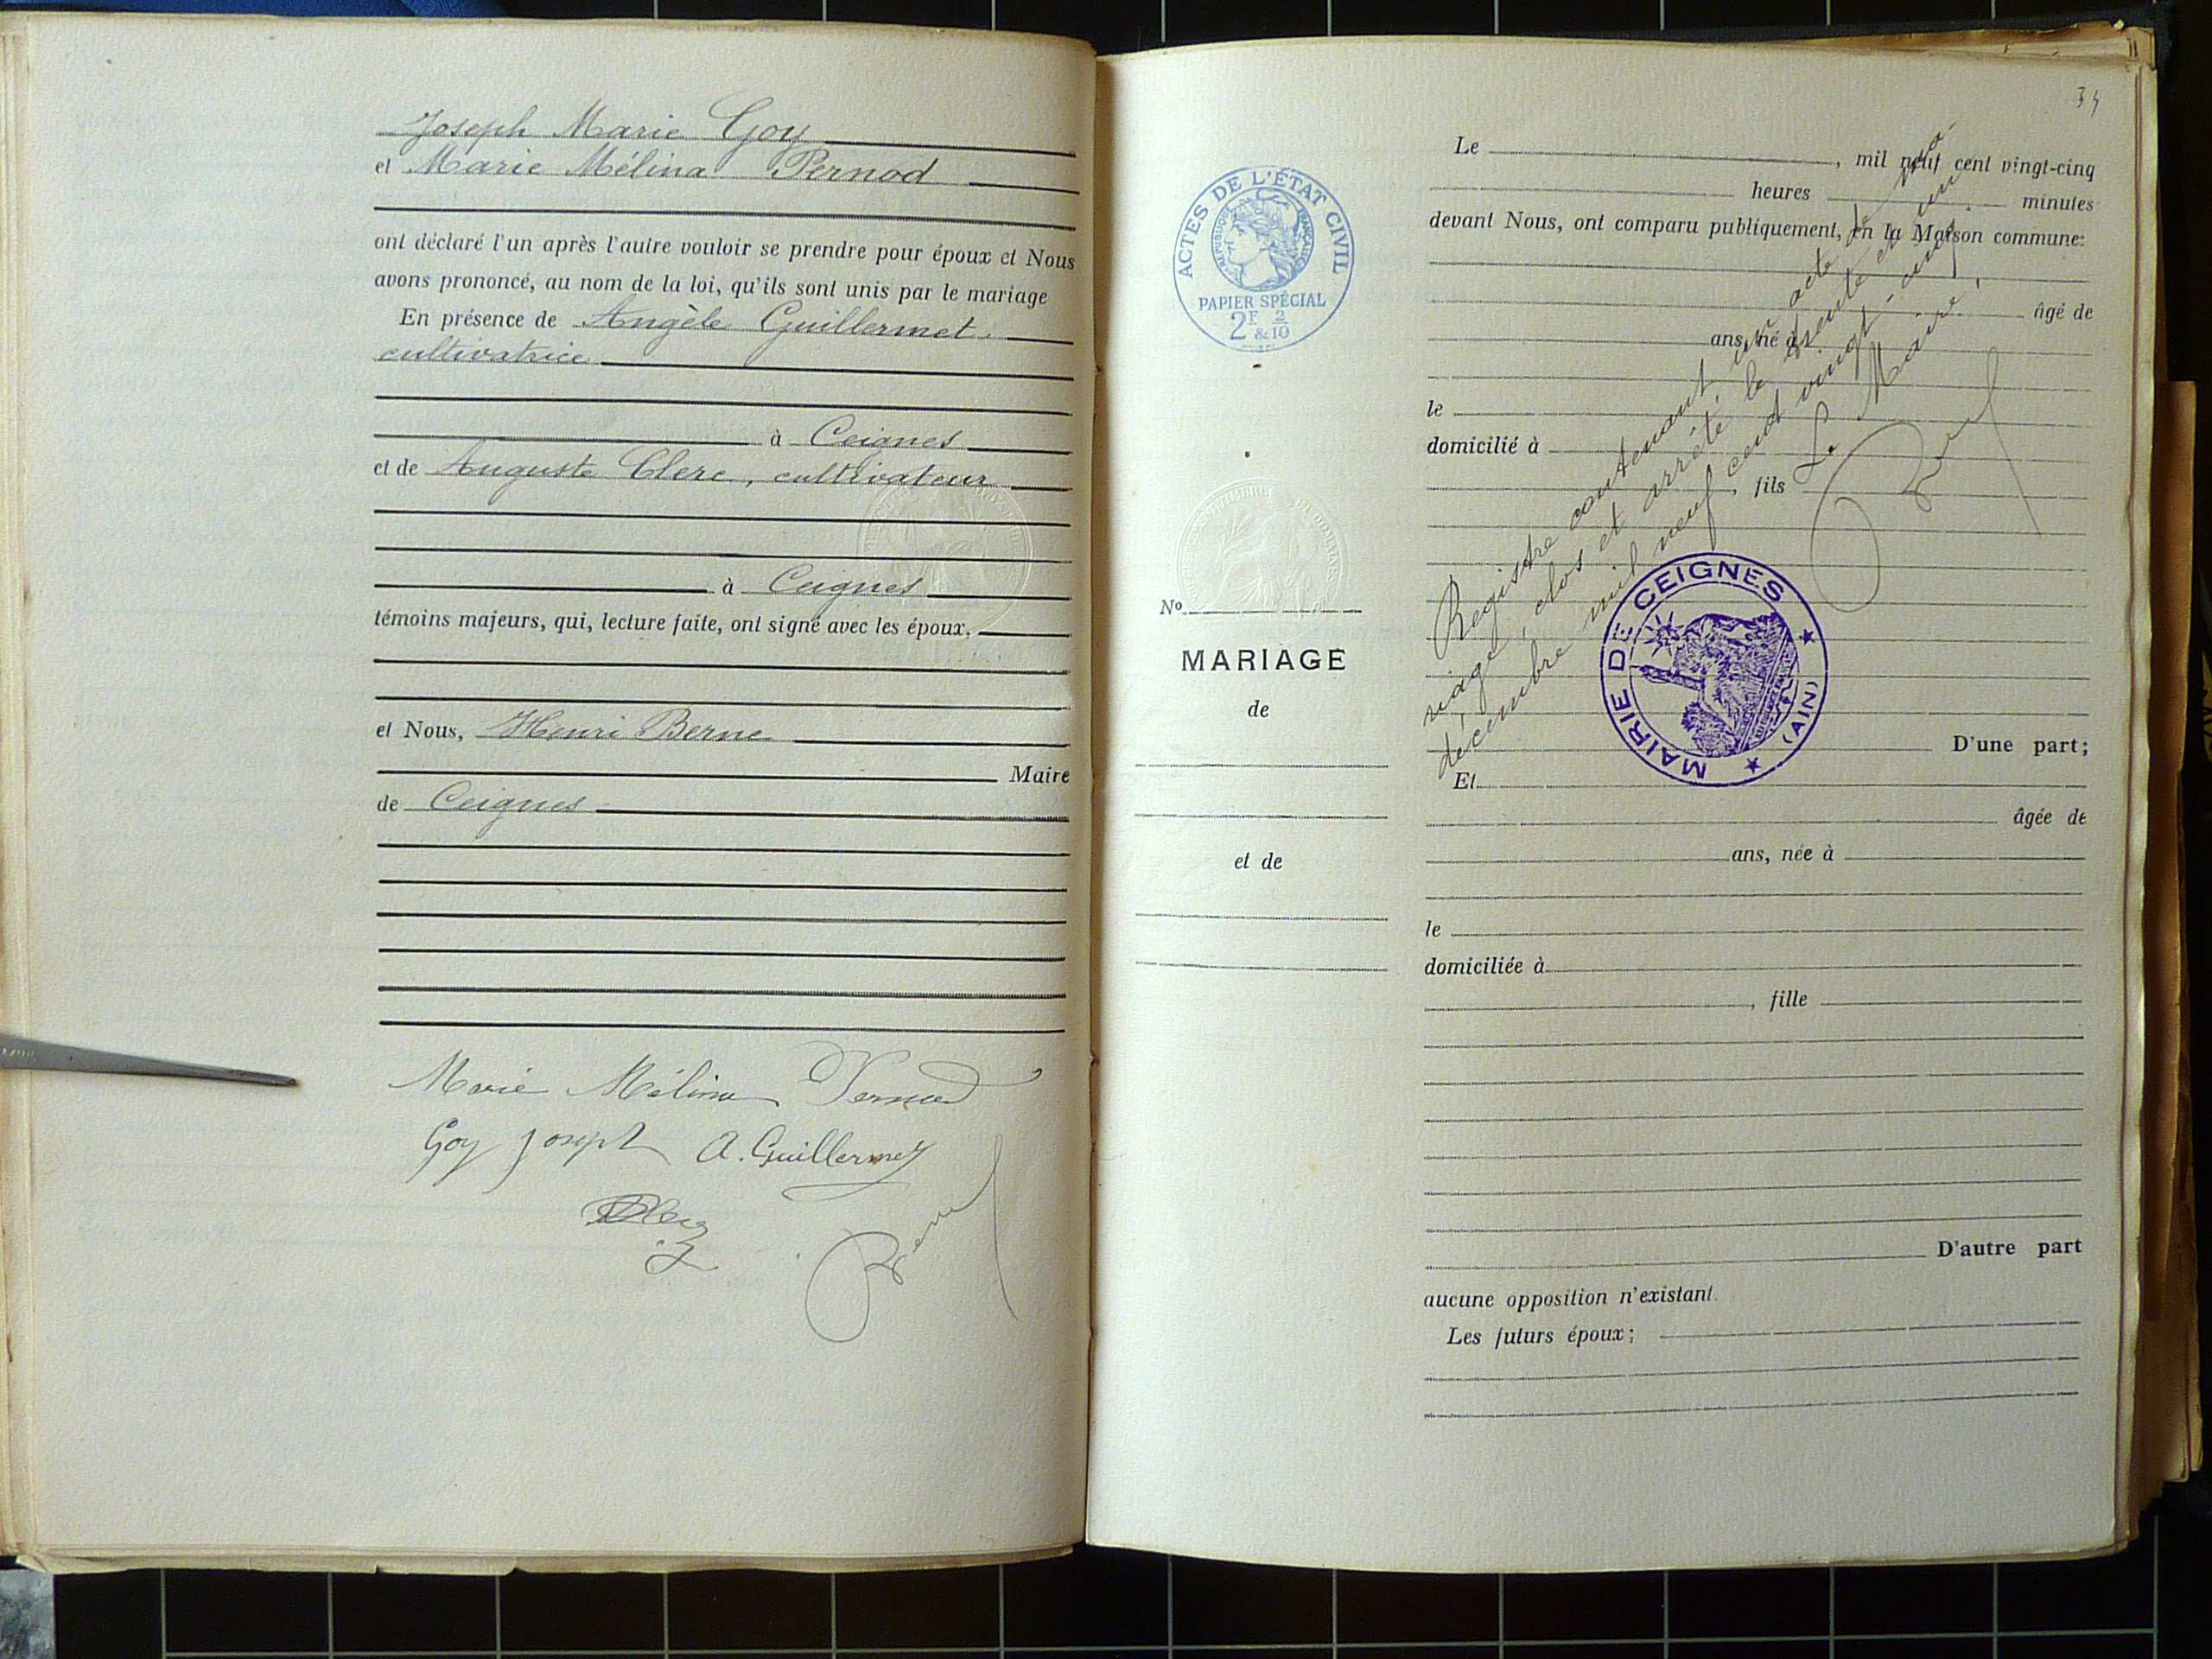 Joseph Marie Goy
et Marie Mélina Pernod
ont déclaré l'un après l'autre vouloir se prendre pour époux et Nous
avons prononcé, au nom de la loi, qu'ils sont unis par le mariage
En présence de Angèle Guillermet,
cultivatrice
à Ceignes
et de Auguste Clerc, cultivateur
à Ceignes
témoins majeurs, qui, lecture faite, ont signé avec les époux.
et Nous, Henri Berne
Maire
de Ceignes
Marie Mélina Pernod
Goy Joseph A. Guillermet
Berne
34
ACTES DE L'ÉTAT CIVIL
RÉPUBLIQUE FRANÇAISE
PAPIER SPÉCIAL
2F 2
& 10
No
MARIAGE
de
et de
Le , mil neuf cent vingt-cinq
heures minutes
devant Nous, ont comparu publiquement, en la Maison commune:
âgé de
ans, né à
le
domicilié à
, fils
D'une part;
Et
âgée de
ans, née à
le
domiciliée à
, fille
D'autre part
aucune opposition n'existant.
Les futurs époux;
Registre contenant un acte de ma-
riage, clos et arrêté le trente et un
décembre mil neuf cent vingt-cinq.
Le Maire,
Berne
MAIRIE DE CEIGNES
(AIN)